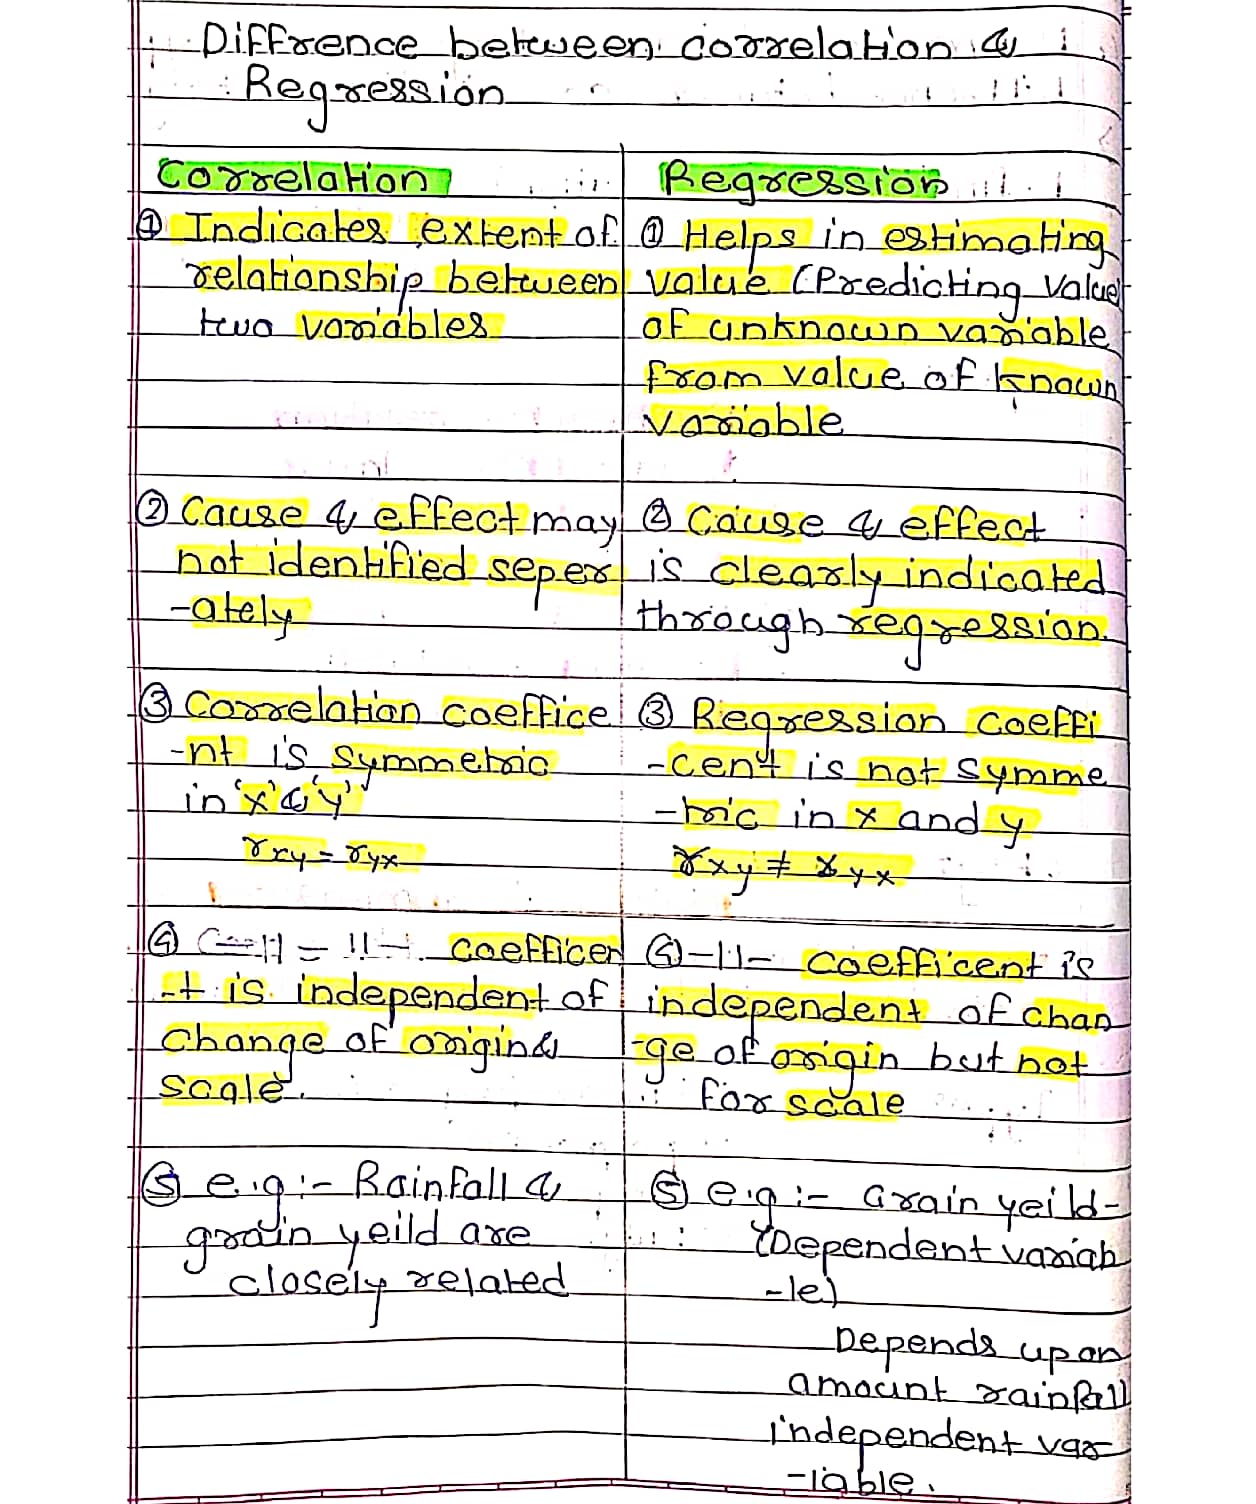 Diffrence between correlation &
Regression
Correlation
① Indicates extent of
relationship between
two variables
② Cause & effect may
not identified seper
-ately
③ Correlation coeffice
-nt is symmetric
in 'x' & 'y'
rxy = ryx
④ coefficen
-t is independent of
change of origin &
scale.
⑤ e.g :- Rainfall &
grain yeild are
closely related
Regression
① Helps in estimating
value (Predicting value
of unknown variable
from value of known
variable
② Cause & effect
is clearly indicated
through regression.
③ Regression coeffi
-cent is not symme
-tric in x and y
rxy ≠ ryx
④ -11- coefficent is
independent of chan
-ge of origin but not
for scale
⑤ e.g :- Grain yeild-
(Dependent variab
-le)
Depends upon
amount rainfall
independent var
-iable.